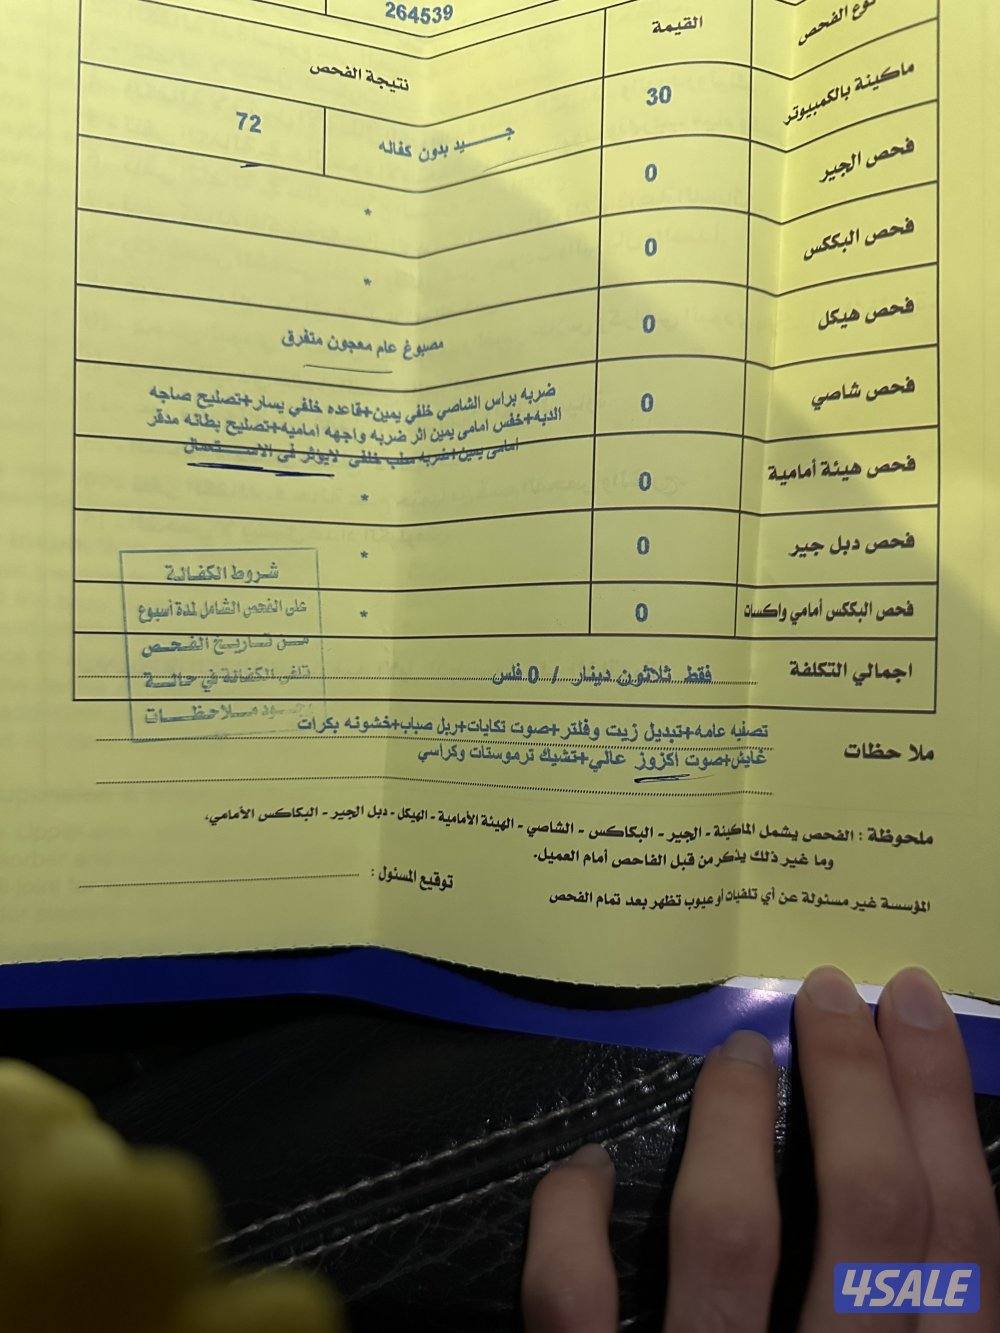 264539
نوع الفحص القيمة نتيجة الفحص
ماكينة بالكمبيوتر 30 جـــــيد بدون كفاله 72
فحص الجير 0 *
فحص البككس 0 *
فحص هيكل 0 مصبوغ عام معجون متفرق
فحص شاصي 0 ضربه براس الشاصي خلفي يمين+قاعده خلفي يسار+تصليح صاجه
الدبه+خفس امامى يمين اثر ضربه واجهه اماميه+تصليح بطانه مدقر
امامى يمين+ضربه صلب خلفى لايؤثر فى الاستعمال
فحص هيئة أمامية 0 *
فحص دبل جير 0 *
فحص البككس أمامي واكسات 0 *
اجمالي التكلفة فقط ثلاثون دينار / 0 فلس
شروط الكفالة
على الفحص الشامل لمدة أسبوع
من تاريخ الفحص
تلغى الكفالة في حالة
وجود ملاحظات
ملاحظات تصفيه عامه+تبديل زيت وفلتر+صوت تكايات+ربل صباب+خشونه بكرات
غايش+صوت اكزوز عالي+تشيك ترموستات وكراسي
ملحوظة : الفحص يشمل الماكينة - الجير - البكاكس - الشاصي - الهيئة الأمامية - الهيكل - دبل الجير - البكاكس الأمامي،
وما غير ذلك يذكر من قبل الفاحص أمام العميل.
المؤسسة غير مسئولة عن أي تلفيات أو عيوب تظهر بعد تمام الفحص
توقيع المسئول :
4SALE